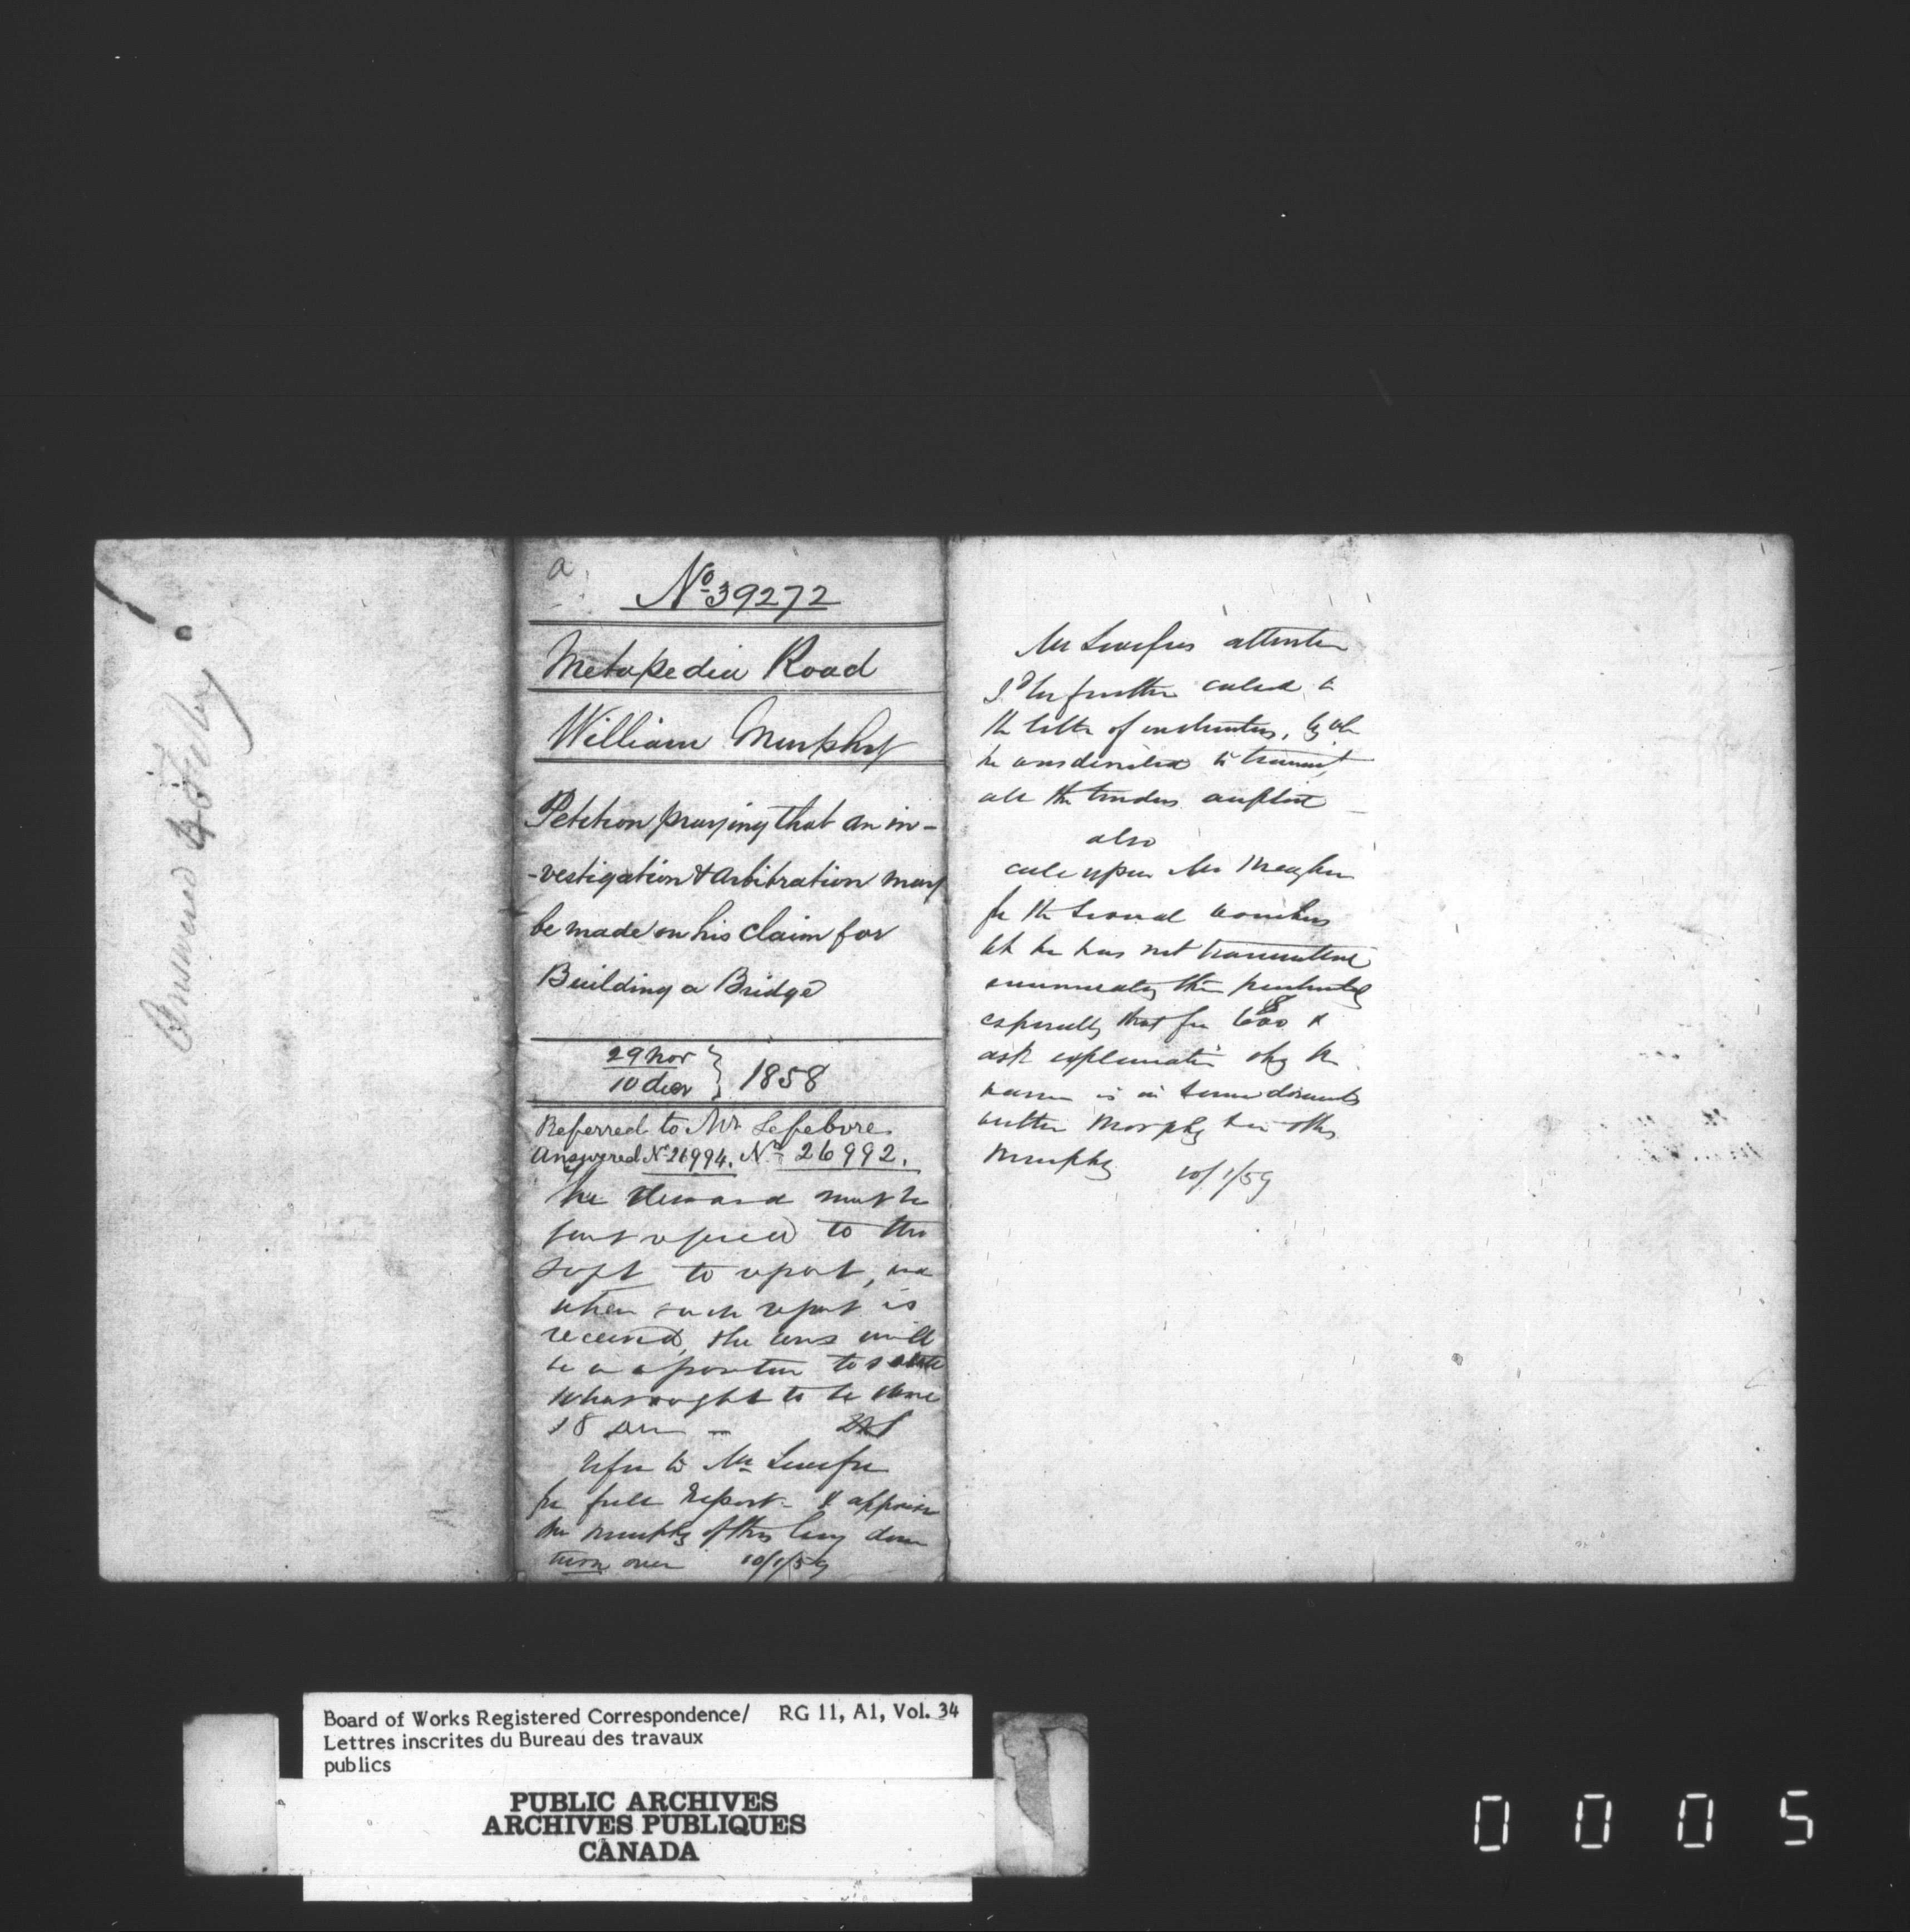 Answered 4 Feby
a
No 39272
Metapedia Road
William Murphy
Petition praying that an in-
-vestigation & Arbitration may
be made on his claim for
Building a Bridge
29 Nov
10 decr } 1858
Referred to Mr Lefebvre.
Answered No 26994. No 26992.
The demand must be
first referred to the
Supt to report, and
when such report is
received, the will
be in a position to state
what ought to be done
18 Dec
Refer to Mr
for full Report - & apprise
Mr Murphy of this being done
turn over 10/1/59
Mr attention
to be further called to
the letter of instructions, by wh
he was desired to transmit
all the tenders
also
call upon Mr Meagher
for the several vouchers
wh he has not transmitted
enumerating them
especially that for &
ask explanation why the
name is in some documents
written Morphy & in others
Murphy 10/1/59
Board of Works Registered Correspondence/ RG 11, A1, Vol. 34
Lettres inscrites du Bureau des travaux
publics
PUBLIC ARCHIVES
ARCHIVES PUBLIQUES
CANADA
0005